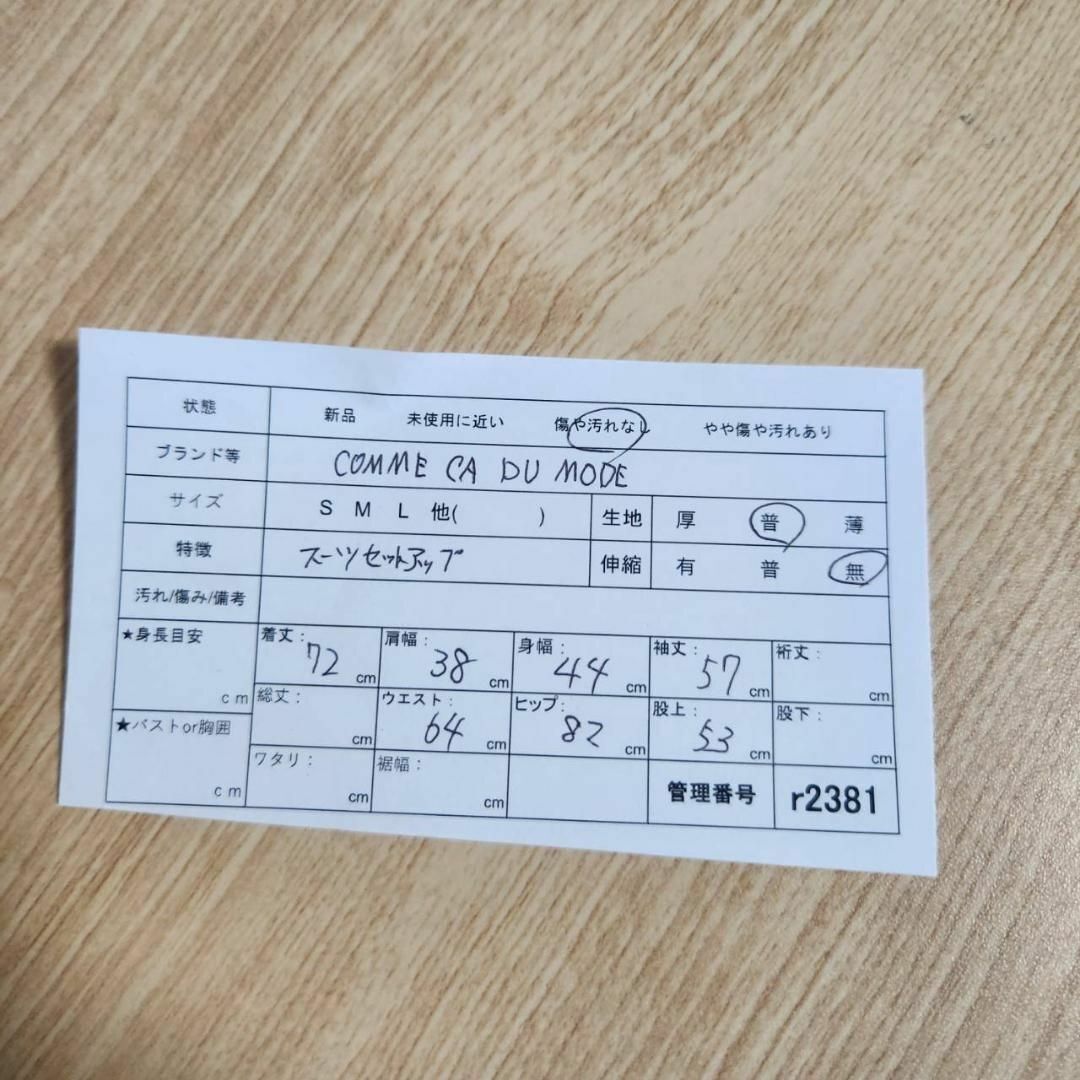 状態 新品 未使用に近い 傷や汚れなし やや傷や汚れあり
ブランド等 COMME CA DU MODE
サイズ S M L 他( ) 生地 厚 普 薄
特徴 スーツセットアップ 伸縮 有 普 無
汚れ/傷み/備考
★身長目安 cm 着丈: 72 cm 肩幅: 38 cm 身幅: 44 cm 袖丈: 57 cm 裄丈: cm
総丈: cm ウエスト: 64 cm ヒップ: 82 cm 股上: 53 cm 股下: cm
★バストor胸囲 cm ワタリ: cm 裾幅: cm 管理番号 r2381